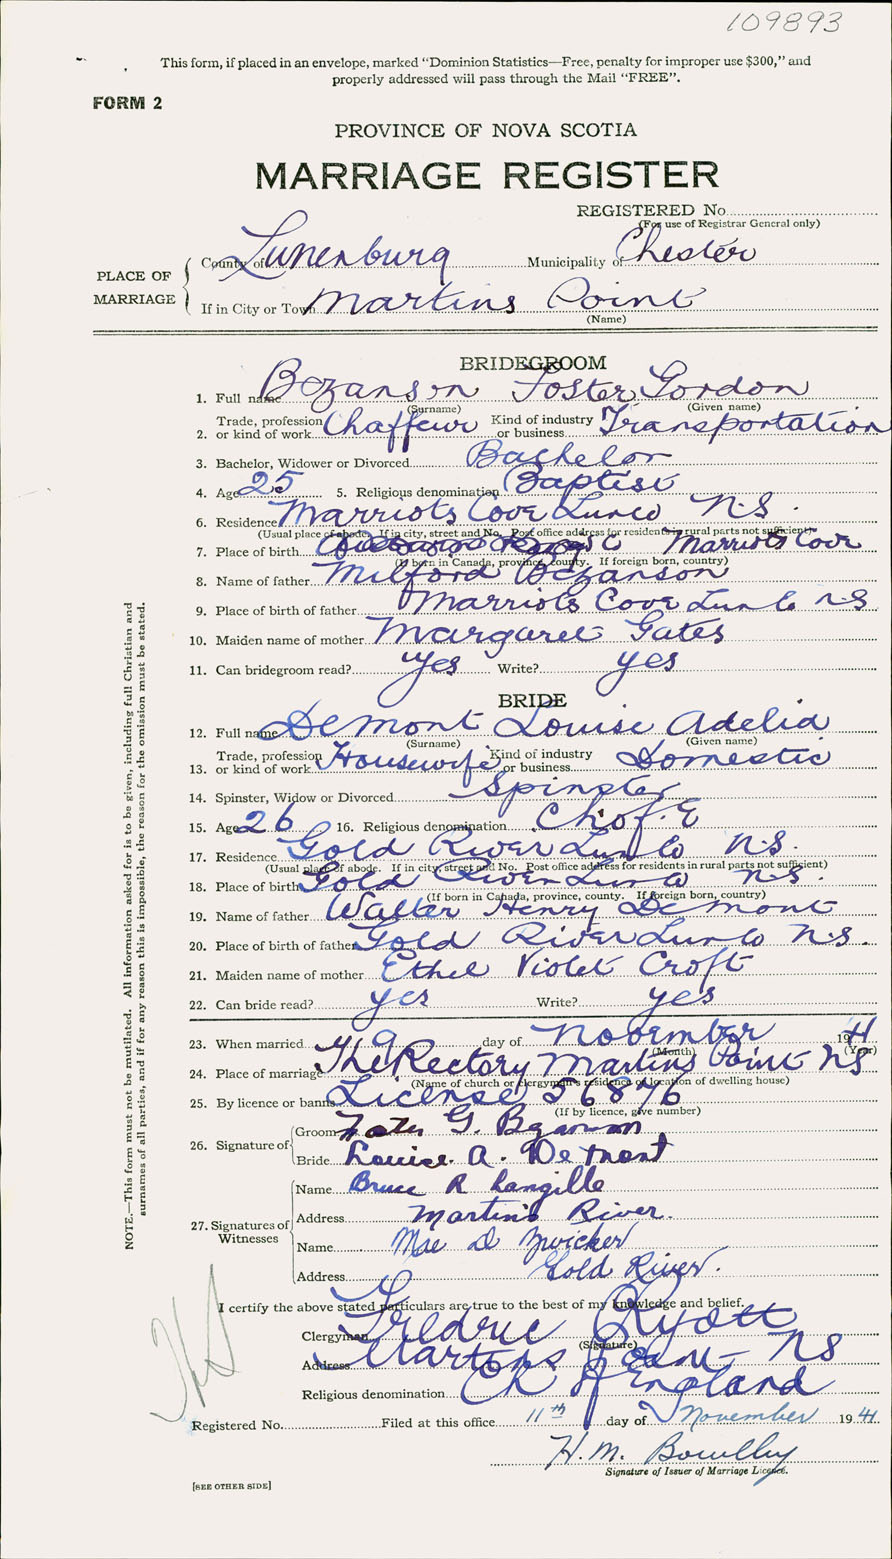 109893
This form, if placed in an envelope, marked "Dominion Statistics—Free, penalty for improper use $300," and
properly addressed will pass through the Mail "FREE".
FORM 2
PROVINCE OF NOVA SCOTIA
MARRIAGE REGISTER
REGISTERED No.
(For use of Registrar General only)
PLACE OF MARRIAGE
County of Lunenburg Municipality of Chester
If in City or Town Martins Point
(Name)
BRIDEGROOM
1. Full name Bezanson Foster Gordon
(Surname) (Given name)
2. Trade, profession or kind of work Chaffeur Kind of industry or business Transportation
3. Bachelor, Widower or Divorced Bachelor
4. Age 25 5. Religious denomination Baptist
6. Residence Marriots Cove Lun Co N.S.
(Usual place of abode. If in city, street and No. Post office address for residents in rural parts not sufficient)
7. Place of birth Marriots Cove
(If born in Canada, province, county. If foreign born, country)
8. Name of father Milford Bezanson
9. Place of birth of father Marriots Cove Lun Co N.S
10. Maiden name of mother Margaret Gates
11. Can bridegroom read? yes Write? yes
BRIDE
12. Full name DeMont Louise Adelia
(Surname) (Given name)
13. Trade, profession or kind of work Housewife Kind of industry or business Domestic
14. Spinster, Widow or Divorced Spinster
15. Age 26 16. Religious denomination Ch of E
17. Residence Gold River Lun Co N.S.
(Usual place of abode. If in city, street and No. Post office address for residents in rural parts not sufficient)
18. Place of birth Gold River Lun Co N.S.
(If born in Canada, province, county. If foreign born, country)
19. Name of father Walter Henry DeMont
20. Place of birth of father Gold River Lun Co N.S.
21. Maiden name of mother Ethel Violet Croft
22. Can bride read? yes Write? yes
23. When married 9 day of November 1941
(Month) (Year)
24. Place of marriage The Rectory Martins Point NS
(Name of church or clergyman's residence or location of dwelling house)
25. By licence or banns License 56876
(If by licence, give number)
26. Signature of
Groom Foster G. Bezanson
Bride Louise. A. DeMont
27. Signatures of Witnesses
Name Bruce R Langille
Address Martin's River.
Name Mae D Zwicker
Address Gold River.
I certify the above stated particulars are true to the best of my knowledge and belief.
Clergyman Fredric Ryott
(Signature)
Address Martins Point NS
Religious denomination Ch of England
Registered No. Filed at this office 11th day of November 1941
H. M.
Signature of Issuer of Marriage Licence.
[SEE OTHER SIDE]
NOTE.—This form must not be mutilated. All information asked for is to be given, including full Christian and
surnames of all parties, and if for any reason this is impossible, the reason for the omission must be stated.